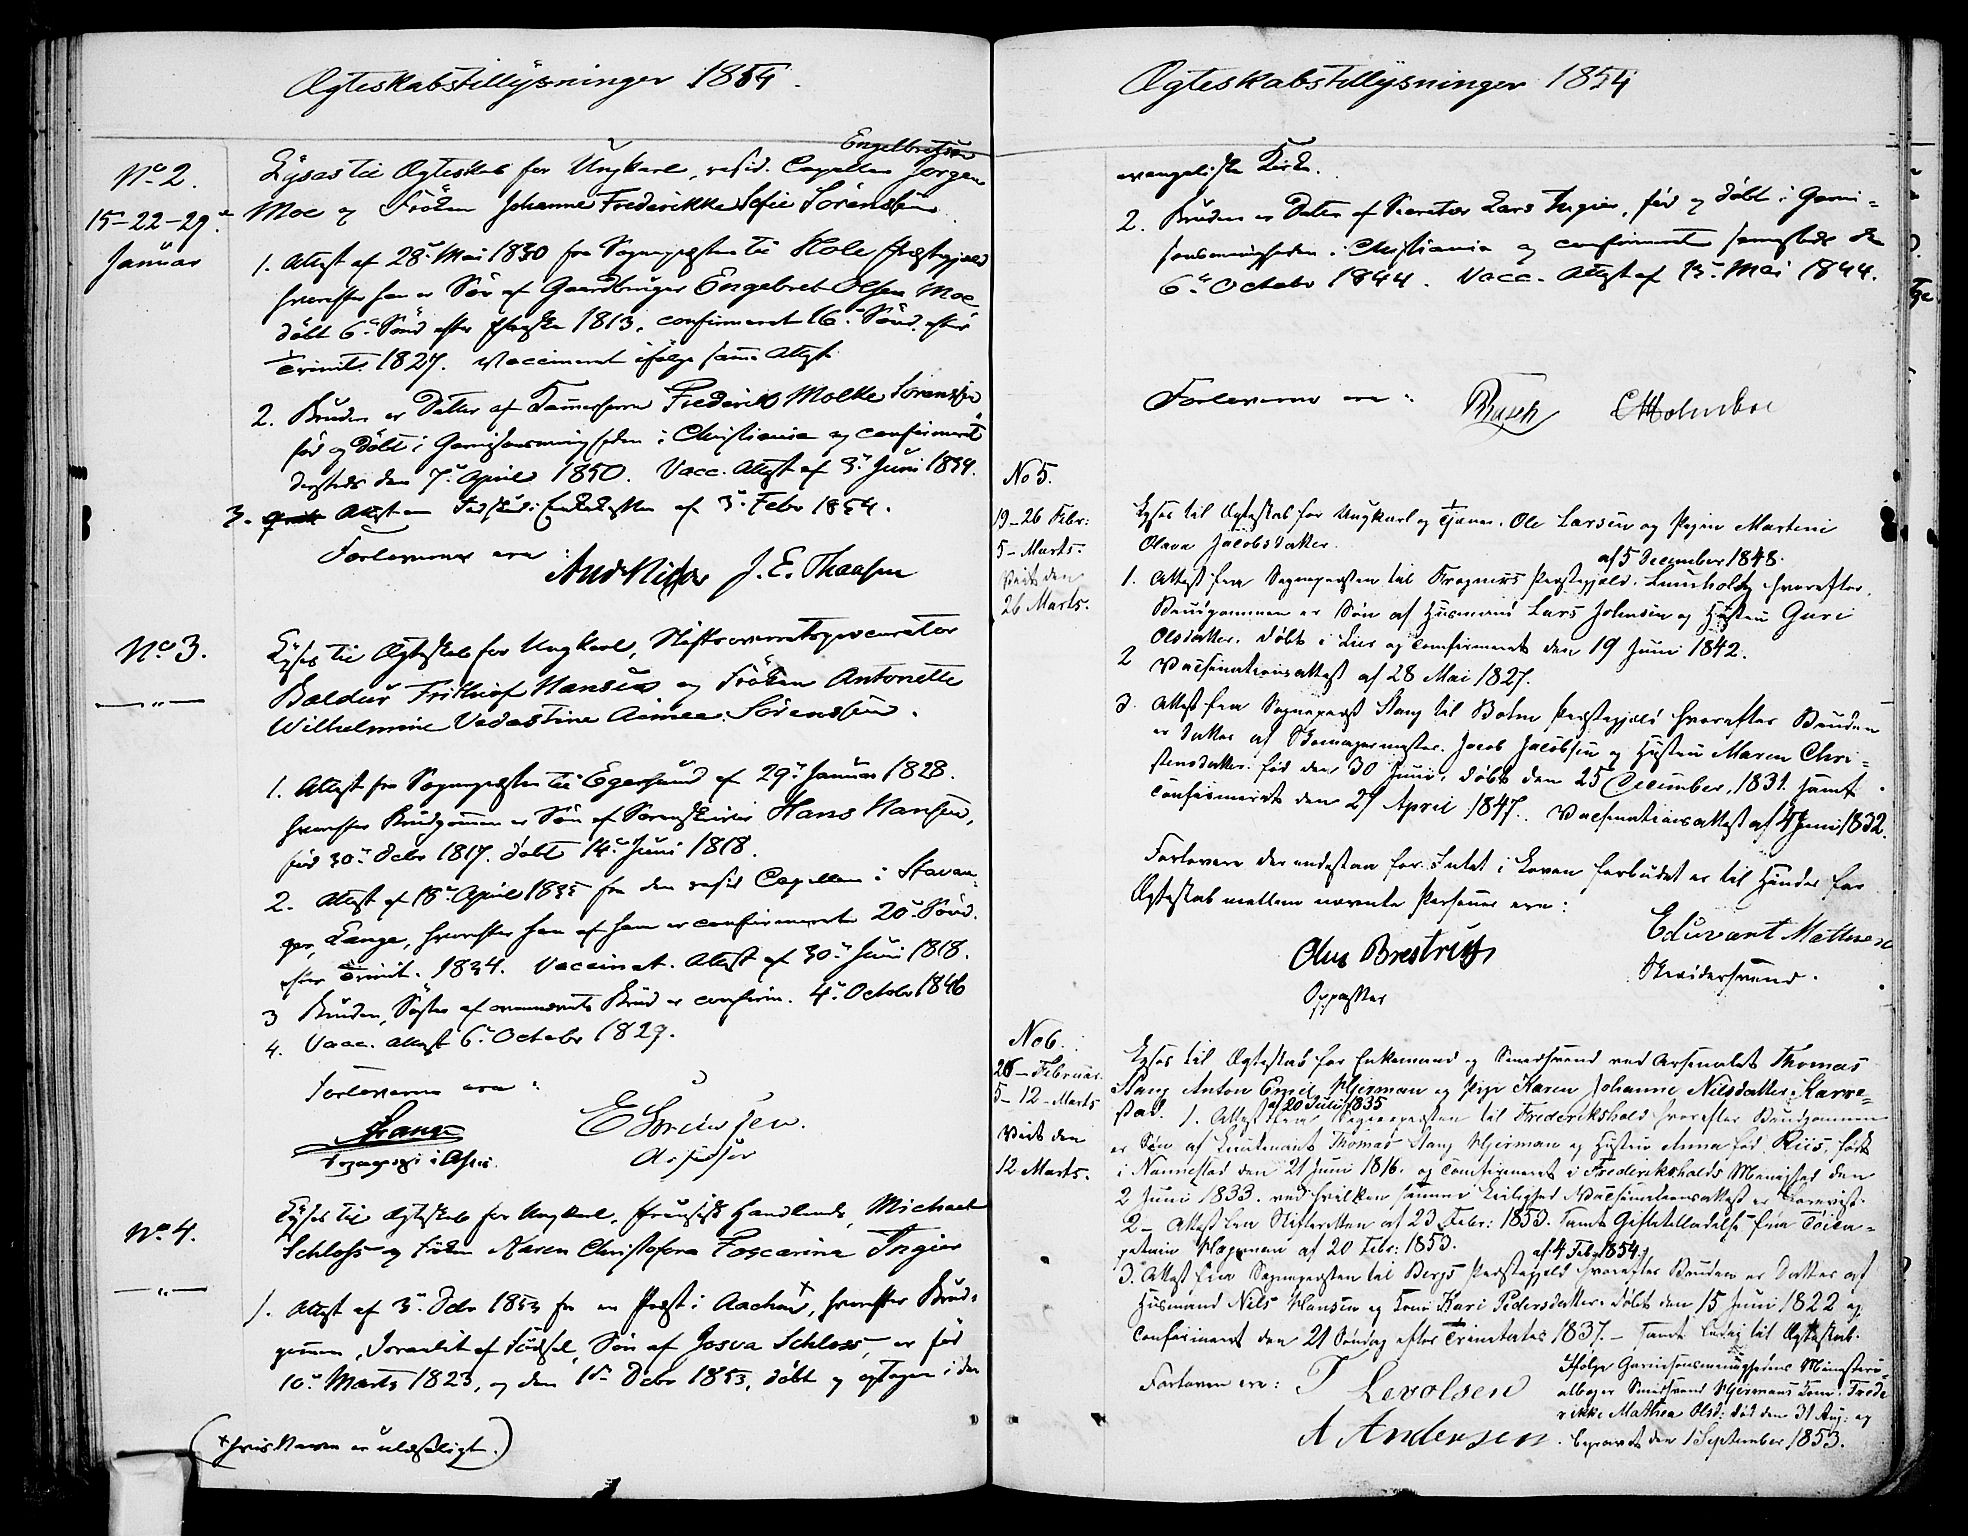 Ægteskabstillysninger 1854.
No 2.
15-22-29de
Januar
Engelbretsen
Lyses til Ægteskab for Ungkarl, resid. Capellan Jørgen
Moe og Frøken Johanne Frederikke Sofie Sørenssen
1. Attest af 28de Mai 1830 fra Sognepræsten til Hole Præstegjeld
hvorefter han er Søn af Gaardbruger Engebret Olsen Moe
døbt 6te Sønd efter Paaske 1813, confirmeret 16de Sønd. efter
Trinit. 1827. Vaccineret ifølge samme Attest
2. Bruden er Datter af Kammerherre Frederik Molke Sørenssen
født og døbt i Garnisonsmenigheden i Christiania og confirmeret
dersteds den 7de April 1850. Vacc. Attest af 3de Juni 1834.
3. Attest om Indskud i Enkekassen af 3de Febr 1854.
Forloverne ere:
J. E. Thaasen
No 3.
— " —
Lyses til Ægteskab for Ungkarl, Stiftsoverretsprocurator
Baldur Frithiof Hansen og Frøken Antonette
Wilhelmine Vedastine Aimee Sørenssen.
1. Attest fra Sognepræsten til Egersund af 29de Januar 1828.
hvorefter Brudgommen er Søn af Sorenskriver Hans Hansen,
født 30te Decbr 1817. døbt 14de Juni 1818.
2. Attest af 18de April 1835 fra den resid Capellan i Stavan-
ger, Lange, hvorefter han af ham er confirmeret 20de Sønd.
efter Trinit. 1834. Vaccinat. Attest af 30te Juni 1818.
3 Bruden, Søster af ovennævnte Brud er confirm. 4de Octobr 1846
4. Vacc. Attest 6te Octobr 1829.
Forloverne ere:
Lange
E Sørenssen.
i Asker.
Assessor
No 4.
— " —
Lyses til Ægteskab for Ungkarl, Handlende, Michael
Schloss og Frøken Maren Christofora Foscarina Ingier
1. Attest af 3de Decbr 1853 fra en Præst i Aachen+, hvorefter Brud-
gommen, Israelit af Fødsel, Søn af Josva Schloss, er født
10de Marts 1823, og den 1ste Decbr 1853, døbt og optagen i den
(+ hvis Navn er ulæseligt.)
Ægteskabstillysninger 1854
evangeliske Kirke.
2. Bruden er Datter af Secretær Lars Ingier, født og døbt i Garni-
sonsmenigheden i Christiania og confirmeret sammesteds den
6te Octobr 1844. Vacc. Attest af 13de Mai 1844.
Forloverne ere:
CA Holmboe
No 5.
19-26 Febr:
5- Marts.
Viet den
26 Marts.
Lyses til Ægteskab for Ungkarl og Tjener. Ole Larsen og Pigen Martini
Olava Jacobsdatter.
af 5 December 1848.
1. Attest fra Sognepræsten til Kragnæs Præstegjeld. Lumholtz hvorefter
Brudgommen er Søn af Husmand Lars Johnsen og Hustru Guri
Olsdatter. døbt i Lier og Confirmeret den 19 Juni 1842.
2 Vacsinationsattest af 28 Mai 1827.
3. Attest fra Sognepræst Stang til Præstegjeld hvorefter Bruden
er Datter af Skomagermester. Jacob Jacobsen og Hustru Maren Chri-
stensdatter. født den 30 Juni, døbt den 25 December, 1831. samt
Confirmeret den 27 April 1847. Vacsinationsattest af 4 Juni 1832.
Forlovere der indestaa for Intet i Loven forbudet er til Hinder for
Ægteskab mellem nævnte Personer ere:
Olus Brestrup
Oppasser
Eduvart Mathisen
Skræddersvend.
No 6.
26- Februar.
5-12-Marts
Viet den
12 Marts.
Lyses til Ægteskab for Enkemand og Smedsvend ved Arsenalet Thomas
Stang Anton Emil Hjerman og Pige Karen Johanne Nilsdatter Karre-
stad. 1. Attest fra Sognepræsten til Frederikshald hvorefter Brudgommen
af 20 Juli 1835
er Søn af Leutenant Thomas Stang Hjerman og Hustru Anna fød Riis, født
i Nannestad den 21 Juni 1816. og Confirmeret i Frederikshalds Menighed den
2 Juni 1833. ved hvilken samme Leilighed Vacsinationsattest er forevist.
2- Attest fra Skifteretten af 23 Febr: 1853. samt Giftetilladelse fra
Hageman af 20 Febr: 1853.
af 4 Feb 1854.
3. Attest fra Sognepræsten til Bergs Præstegjeld hvorefter Bruden er Datter af
Husmand Nils Hansen og Kone Kari Pedersdatter. døbt den 15 Juni 1822 og
Confirmeret den 21 Søndag efter Trinitatis 1837. - samt ledig til Ægteskab.
Forlovere ere:
T Levolsen
A Andersen.
Ifølge Garnisonsmenighedens Ministeri-
albog er Smedsvend Hjermans Kone. Frede
rikke Mathea Olsd: død den 31 Aug: og
begravet den 1 September 1853.